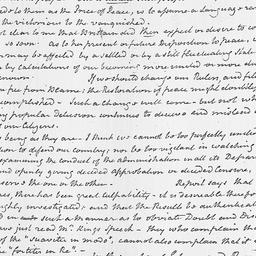 to them as the Force of Peace, to assume a language rea
the victorious to the vanquished.
t clear to me that Britain did then expect or desire to co
so soon. as to her present or future Disposition to peace,
may be affected by a settled or by a still fluctuating State
by calculations of our becoming more united or more di
known. If we should change our Rulers, and fill
free from Blame, the Restoration of peace might doubtless
complished. Such a change will come but not wh
popular Delusion continues to deceive and mislead
our citizens.
being as they are, I think we cannot be too perfectly united
tion to defend our country; nor be too vigilant in watching
examining the conduct of the Administration in all its Depart
and openly giving decided approbation or decided censure,
serve the one or the other. Report says that
there has been great culpability. it is desireable that
ghly investigated, and that the Result be authenticated
in such a Manner as to obviate Doubt and Dis
just read Mr. Kings Speech. they who complain tha
of the "suaviter in modo", cannot also complain that it
"fortiter in Re".